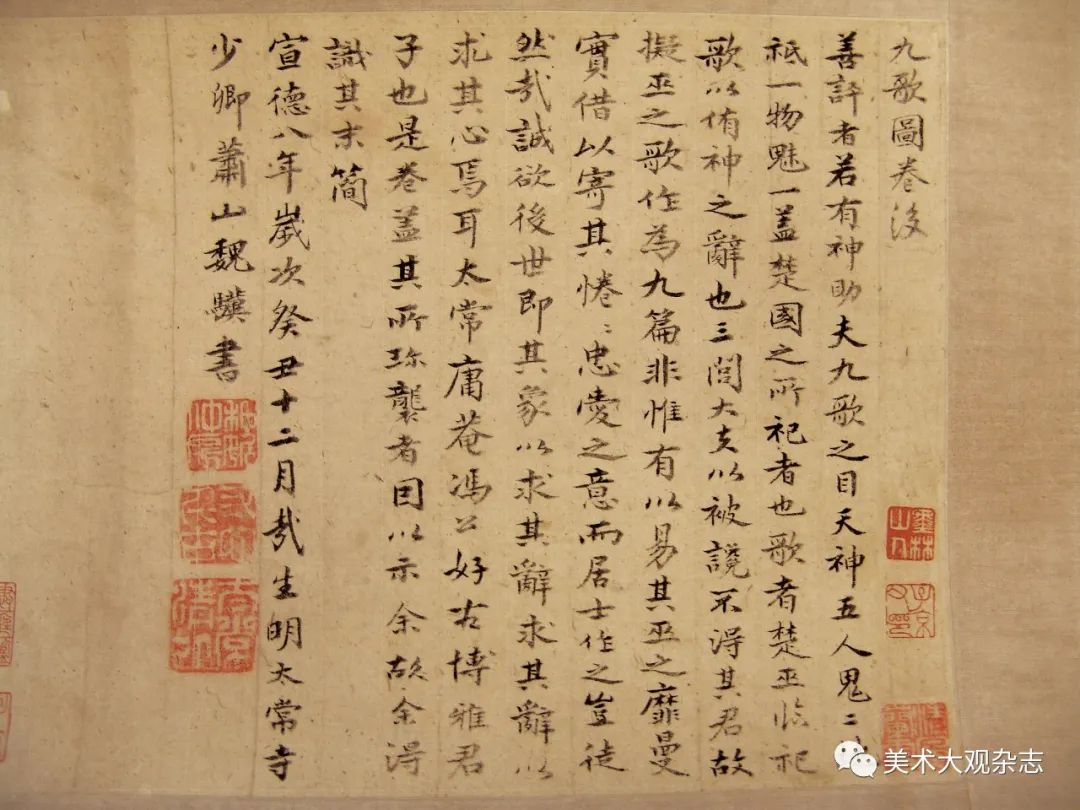 九歌圖卷後
善評者若有神助夫九歌之目天神五人鬼二地
祇一物魅一蓋楚國之所祀者也歌者楚巫臨祀
歌以侑神之辭也三閭大夫以被讒不得其君故
擬巫之歌作為九篇非惟有以易其巫之靡曼
實借以寄其惓〻忠愛之意而居士作之豈徒
然哉誠欲後世即其象以求其辭求其辭以
求其心焉耳太常庸菴馮公好古博雅君
子也是卷蓋其所珎襲者因以示余故余得
識其末簡
宣德八年歲次癸丑十二月哉生明太常寺
少卿蕭山魏驥書
墨林山人
子京父印
美术大观杂志